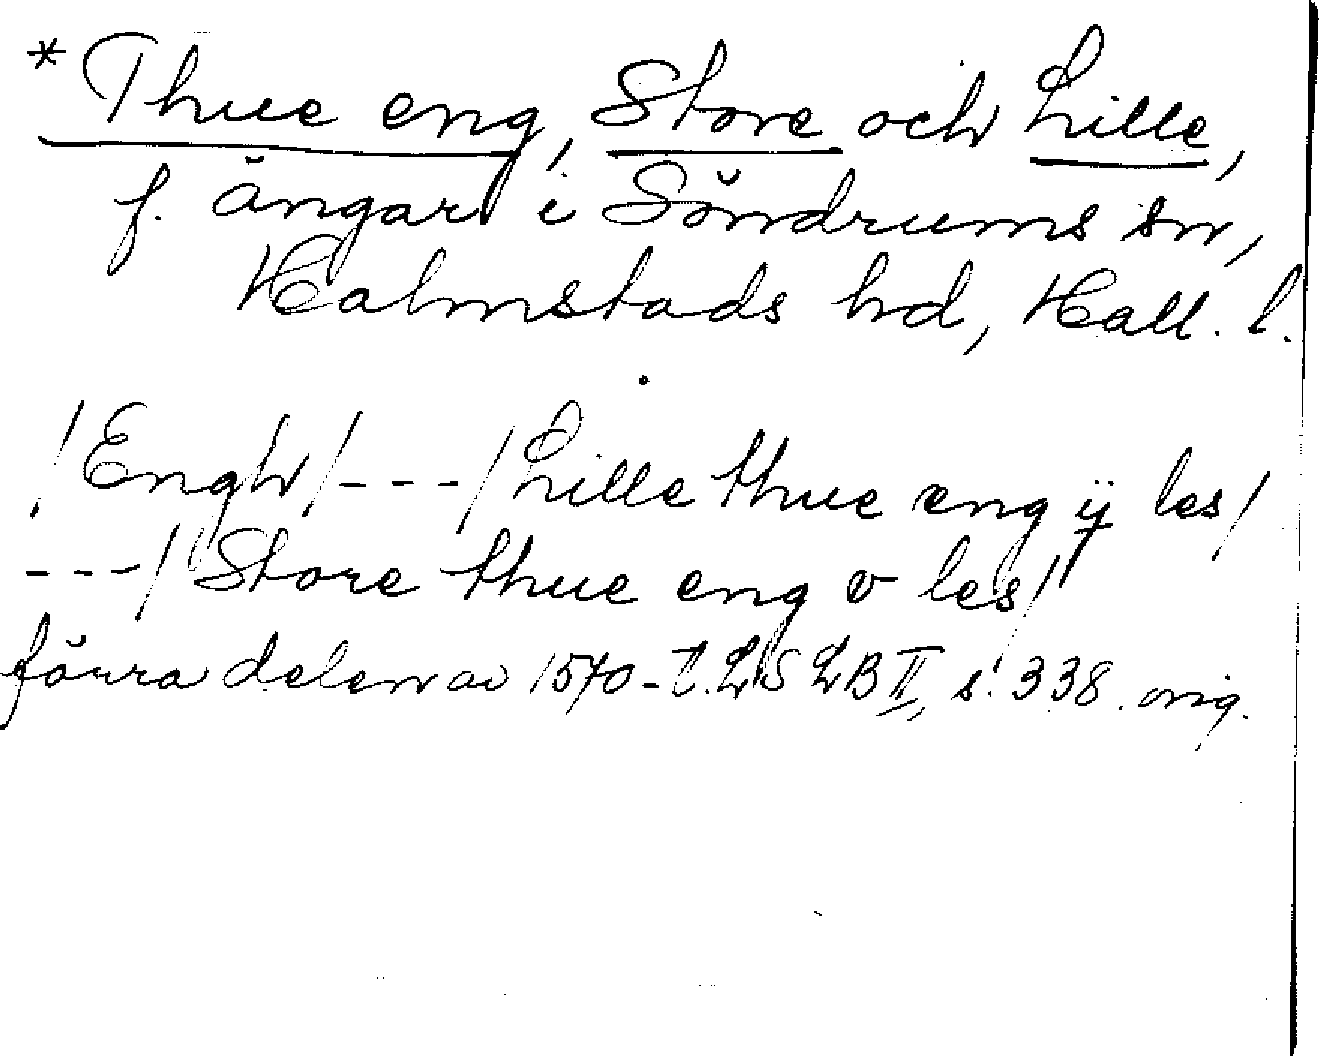 * Thue eng, Store och Lille,
f. ängar i Söndrums sn,
Halmstads hd, Hall. l.
/Engh/---/Lille thue eng ij les/
---/Store thue eng v les/
förra delen av 1570-t. LLS LB II, s. 338. orig.